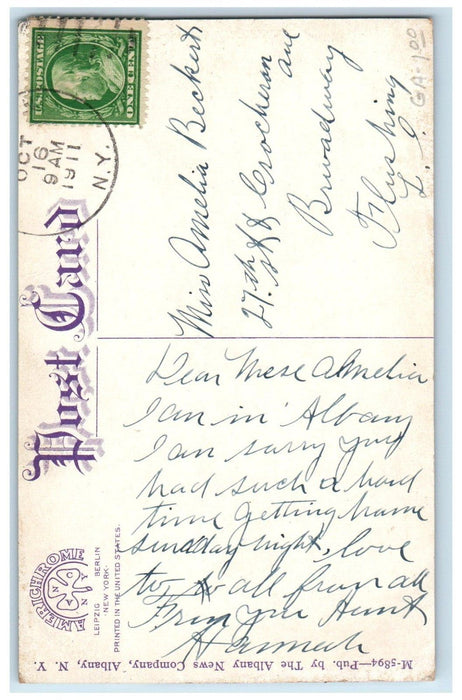 U.S. POSTAGE
ONE CENT
OCT
16
9 AM
1911
N.Y.
GA-1.00
Post Card
Miss Amelia Beckert
27th St & Crocheron
ave
Broadway
Flushing
L. I.
Dear Niese Amelia
I am in Albany
I am sorry you
had such a hard
time getting hame
sunday night, love
to all from all
From your Aunt
Hannah
AMERICHROME
LEIPZIG BERLIN
NEW-YORK
PRINTED IN THE UNITED STATES.
M-5894—Pub. by The Albany News Company, Albany, N. Y.